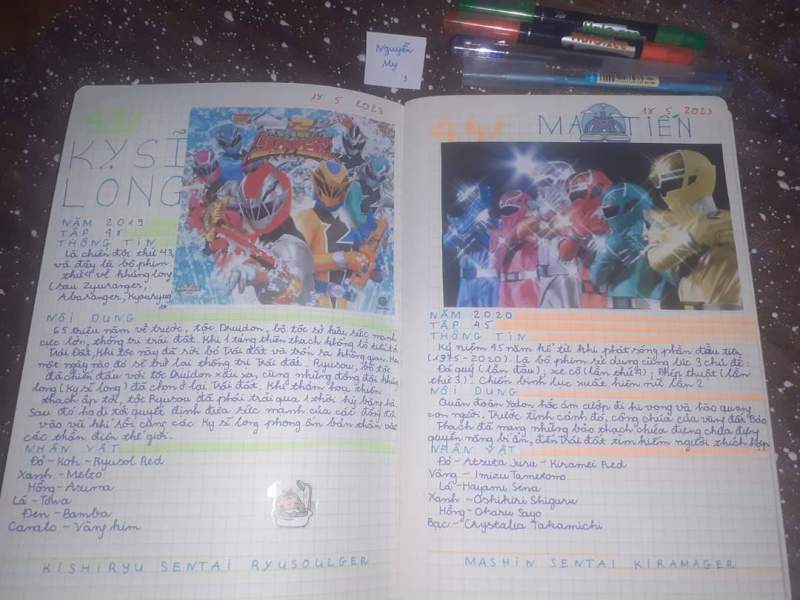 Nguyễn
My
18 5 2023
KỴ SĨ
LONG
NĂM 2019
TẬP 48
THÔNG TIN
Là chiến đội thứ 43,
và đây là bộ phim
thứ 4 về khủng long
(sau Zyuranger,
Abaranger, Kyoryug
NỘI DUNG
65 triệu năm về trước, tộc Druidon, bộ tộc sở hữu sức mạnh
cực lớn, thống trị trái đất. Khi 1 tảng thiên thạch khổng lồ
Trái Đất, khi tộc này đã rời bỏ Trái đất và trốn ra không gian.
một ngày nào đó sẽ trở lại thống trị Trái đất. Ryusou, bộ tộc
đã chiến đấu với tộc Druidon xấu xa, cùng những đồng đội khủng
long (Kỵ sĩ long) đã chọn ở lại Trái đất. Khi thảm họa thiên
thạch ập tới, tộc Ryusou đã phải trải qua 1 thời kỳ băng hà.
Sau đó họ đi tới quyết định đưa sức mạnh của các
vào vũ khí rồi cùng các Kỵ sĩ long phong ấn bản thân vào
các thần điện thế giới.
NHÂN VẬT
Đỏ - Koh - Ryusol Red
Xanh - Melto
Hồng - Asuna
Lá - Towa
Đen - Bamba
Canalo - Vàng kim
KISHIRYU SENTAI RYUSOULGER
18 5 2023
44/
MA TIẾN
NĂM 2020
TẬP 45
THÔNG TIN
Kỷ niệm 45 năm kể từ khi phát sóng phần đầu tiên
(1975-2020). Là bộ phim sử dụng cùng lúc 3 chủ đề:
Đá quý (lần đầu); xe cộ (lần thứ 4); Phép thuật (lần
thứ 3). Chiến binh lục xuất hiện nữ lần 2
NỘI DUNG
Quân đoàn Yodon hắc ám cướp đi hi vọng và hào quang
con người. Trước tình cảnh đó, công chúa của vùng đất Bảo
Thạch đã mang những bảo thạch chứa đựng
quyền năng bí ẩn, đến Trái đất tìm kiếm người thích hợp
NHÂN VẬT
Đỏ - Atsuta Juru - Kiramei Red
Vàng - Imizu Tametomo
Lá - Hayami Sena
Xanh - Oshikiri Shiguru
Hồng - Oharu Sayo
Bạc - Crystalia Takamichi
MASHIN SENTAI KIRAMAGER